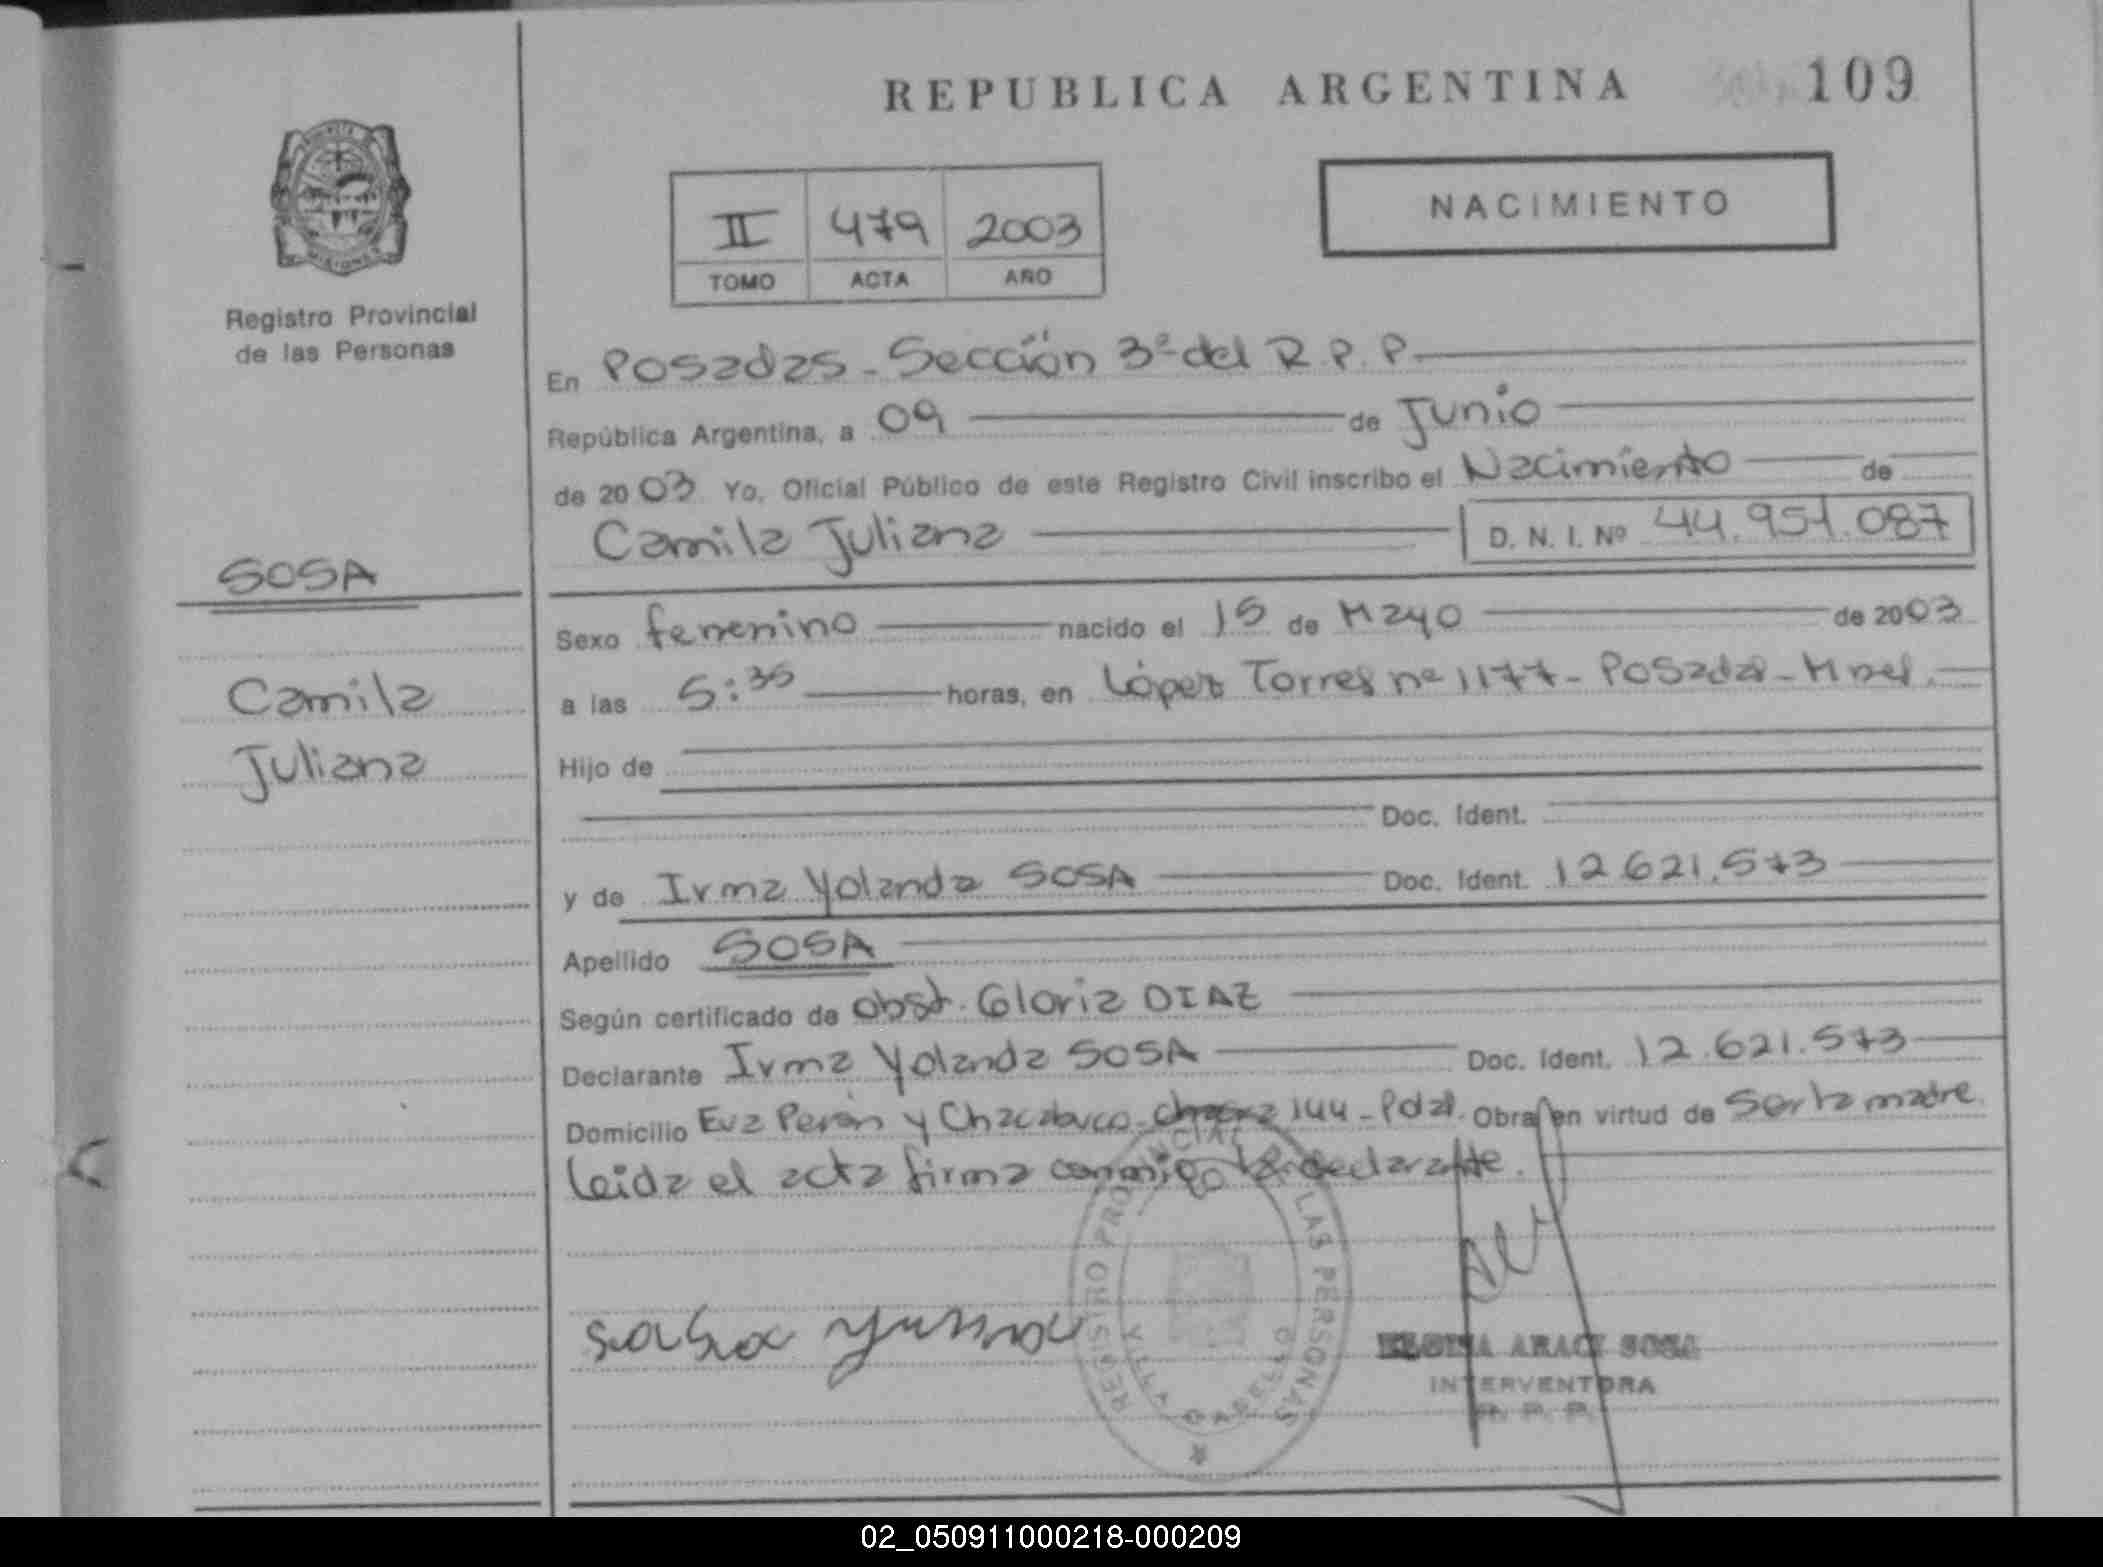 REPUBLICA ARGENTINA 109
NACIMIENTO
II 479 2003
TOMO ACTA AÑO
Registro Provincial
de las Personas
En Posadas - Sección 3ª del R.P.P.
República Argentina, a 09 de Junio
de 2003 Yo, Oficial Público de este Registro Civil inscribo el Nacimiento de
Camila Juliana D. N. I. Nº 44.951.087
SOSA
Sexo femenino nacido el 15 de Mayo de 2003
Camila
a las 5:35 horas, en López Torres nº 1177 - Posadas - Mnes.
Juliana
Hijo de
Doc. Ident.
y de Irma Yolanda SOSA Doc. Ident. 12.621.573
Apellido SOSA
Según certificado de obst. Gloria DIAZ
Declarante Irma Yolanda SOSA Doc. Ident. 12.621.573
Domicilio Eva Perón y Chacabuco - chacra 144 - Pdas. Obra en virtud de Ser la madre
leida el acta firma conmigo la declarante.
REGISTRO PROVINCIAL LAS PERSONAS
VILLA CABELLO
REGINA ARACI SOSA
INTERVENTORA
R. P. P.
02_050911000218-000209